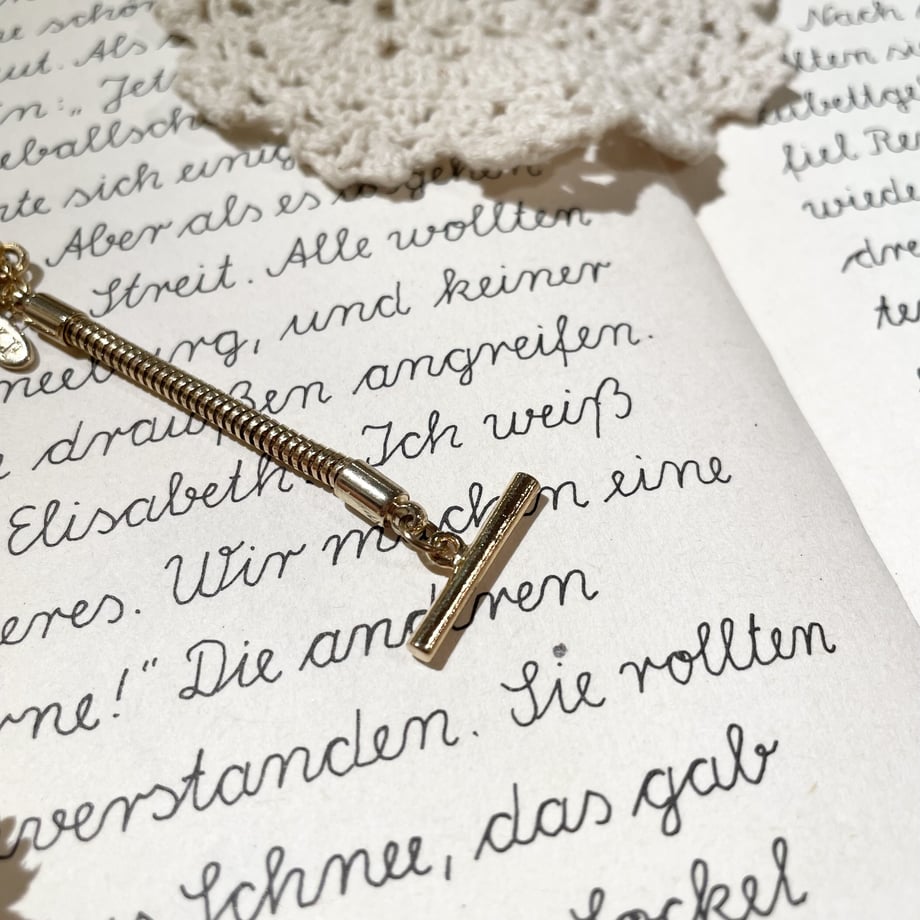 schön
Als
"Jet
eballsch
te sich einig
Aber als es gehen
Streit. Alle wollten
neeburg, und keiner
draußen angreifen.
Elisabeth. Ich weiß
eres. Wir machen eine
rne!" Die anderen
verstanden. Sie rollten
Schnee, das gab
Sockel
Nach
lten si
bettge
fiel Re
wiede
dre
te